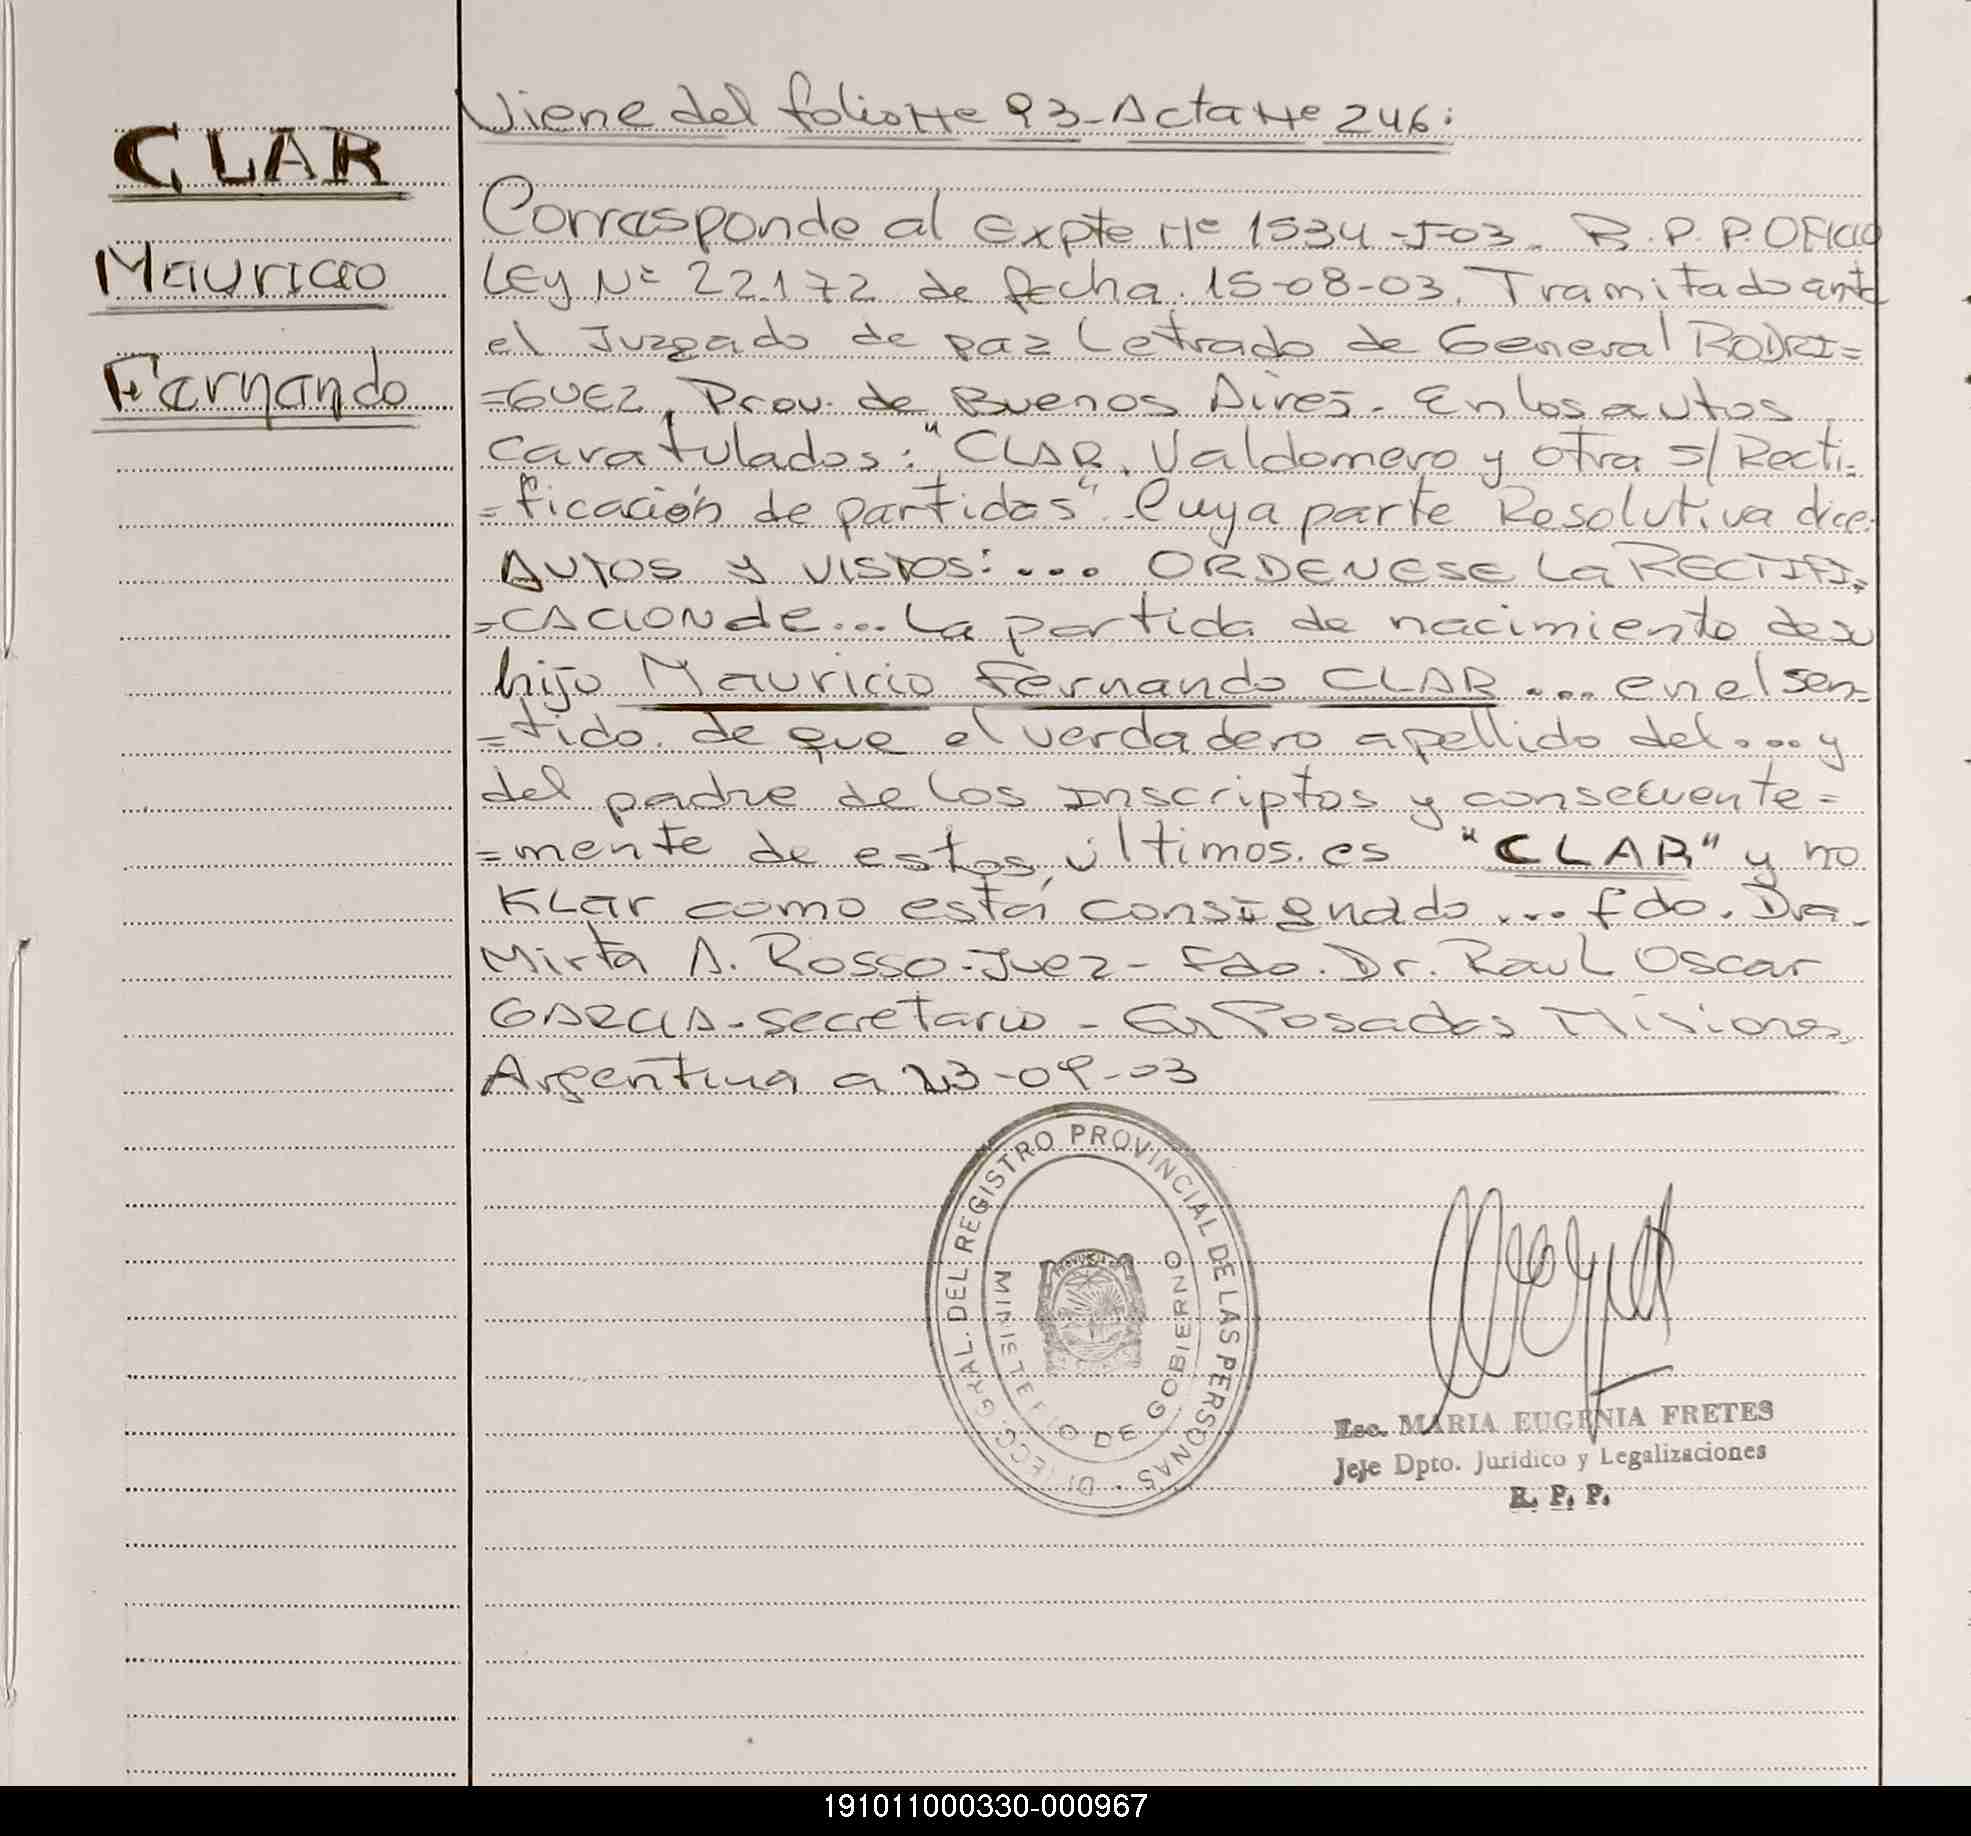 CLAR
Mauricio
Fernando
Viene del folio Nº 93 - Acta Nº 246:
Corresponde al Expte Nº 1534-J-03. R.P.P. OFICIO
LEY Nº 22.172 de fecha. 15-08-03. Tramitado ante
el Juzgado de paz Letrado de General RODRI=
=GUEZ, Prov. de Buenos Aires. En los autos
caratulados: "CLAR, Valdomero y otra s/ Recti-
=ficación de partidas". Cuya parte Resolutiva dice:
AUTOS y VISTOS: ... ORDENESE La RECTIFI=
=CACION de... La partida de nacimiento de su
hijo Mauricio Fernando CLAR ... en el sen=
=tido. de que el verdadero apellido del... y
del padre de los inscriptos y consecuente=
=mente de estos, últimos. es "CLAR" y no
KLar como está consignado ... fdo. Dra.
Mirta A. Rosso - Juez - Fdo. Dr. Raul Oscar
GARCIA - secretario - En Posadas Misiones,
Argentina a 23-09-03
DIRECC. GRAL. DEL REGISTRO PROVINCIAL DE LAS PERSONAS
MINISTERIO DE GOBIERNO
Esc. MARIA EUGENIA FRETES
Jefe Dpto. Jurídico y Legalizaciones
R. P. P.
191011000330-000967